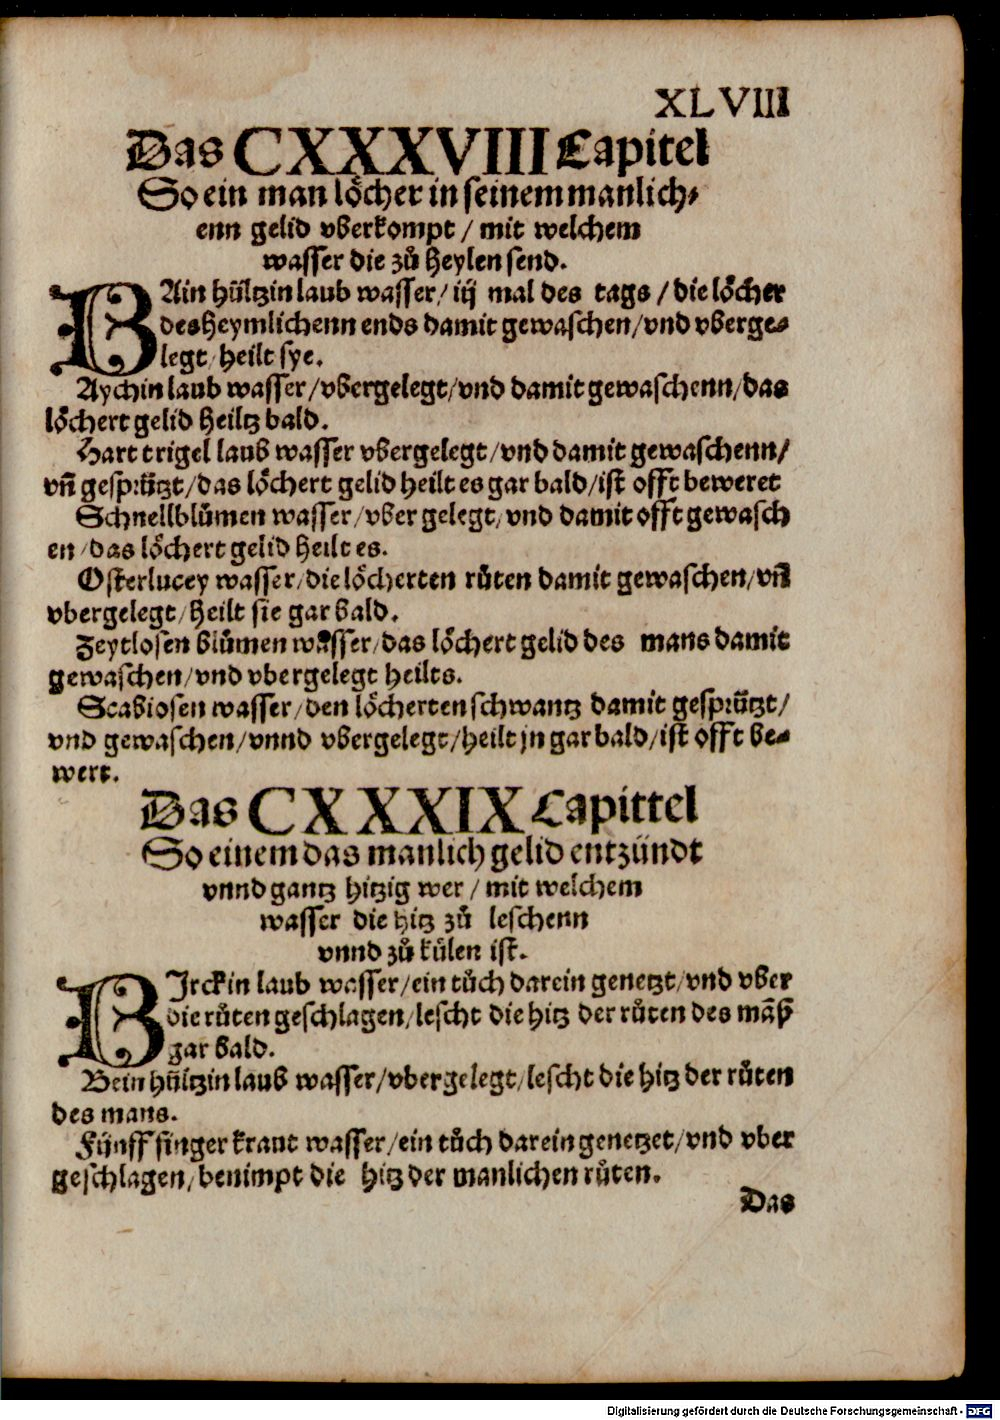 XLVIII
Das CXXXVIII Capitel
So ein man löcher in seinem manlich⸗
enn gelid vberkompt / mit welchem
wasser die zů heylen send.
BAin hültzin laub wasser / iij mal des tags / die löcher
des heymlichenn ends damit gewaschen / vnd vberge⸗
legt / heilt sye.
Aychin laub wasser / vbergelegt / vnd damit gewaschenn / das
löchert gelid heiltz bald.
Hart trigel laub wasser vbergelegt / vnd damit gewaschenn /
vñ gesprützt / das löchert gelid heilt es gar bald / ist offt beweret
Schnellblůmen wasser / vber gelegt / vnd damit offt gewasch
en / das löchert gelid heilt es.
Osterlucey wasser / die löcherten růten damit gewaschen / vñ
vbergelegt / heilt sie gar bald.
Zeytlosen blůmen wasser / das löchert gelid des mans damit
gewaschen / vnd vbergelegt heilts.
Scabiosen wasser / den löcherten schwantz damit gesprützt /
vnd gewaschen / vnnd vbergelegt / heilt jn gar bald / ist offt be⸗
wert.
Das CXXXIX Capittel
So einem das manlich gelid entzündt
vnnd gantz hitzig wer / mit welchem
wasser die hitz zů leschenn
vnnd zů külen ist.
BIrckin laub wasser / ein tůch darein genetzt / vnd vber
die růten geschlagen / lescht die hitz der růten des mãß
gar bald.
Bein hültzin laub wasser / vbergelegt / lescht die hitz der růten
des mans.
Fünff finger kraut wasser / ein tůch darein genetzet / vnd vber
geschlagen / benimpt die hitz der manlichen růten.
Das
Digitalisierung gefördert durch die Deutsche Forschungsgemeinschaft - DFG